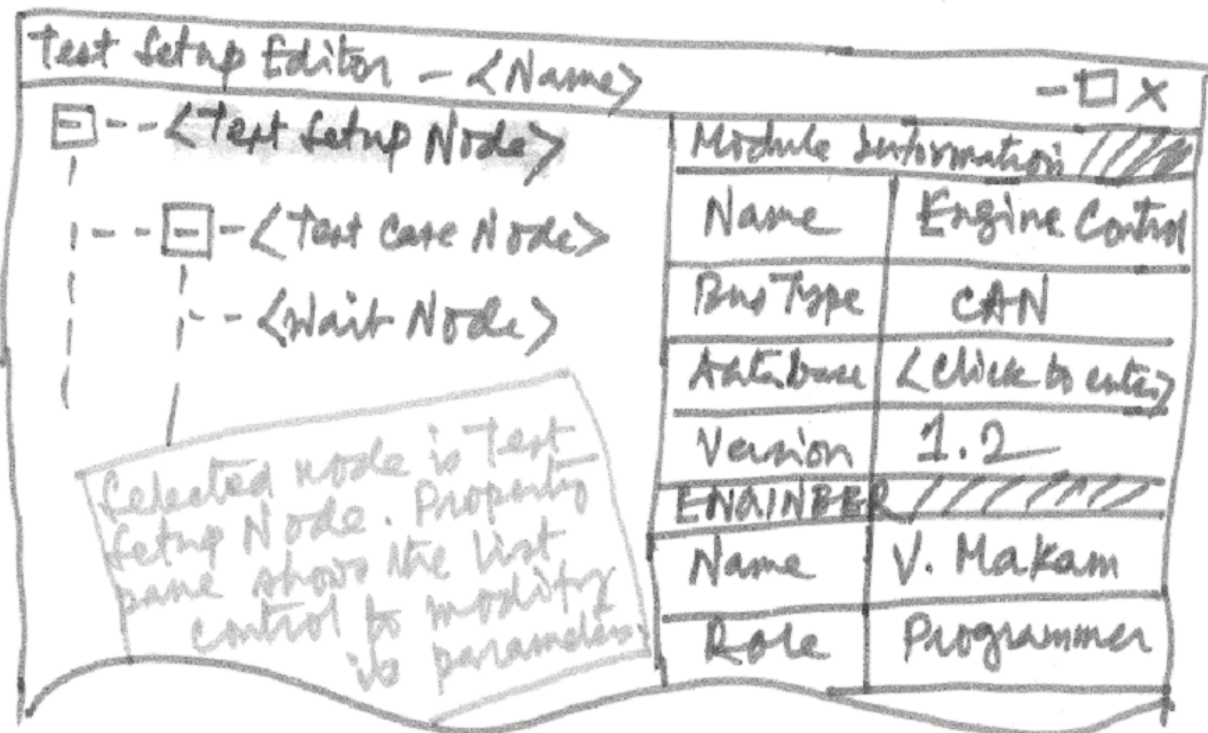 Test Setup Editor - <Name>
<Test Setup Node>
<Test Case Node>
<Wait Node>
Selected node is Test
Setup Node. Property
pane shows the list
control to modify
its parameters
Module Information
Name Engine Control
Bus Type CAN
Database <Click to enter>
Version 1.2
ENGINEER
Name V. Makam
Role Programmer